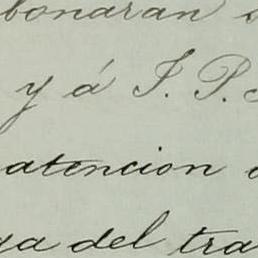 bonaran
y á J. P.
atencion
ga del tra